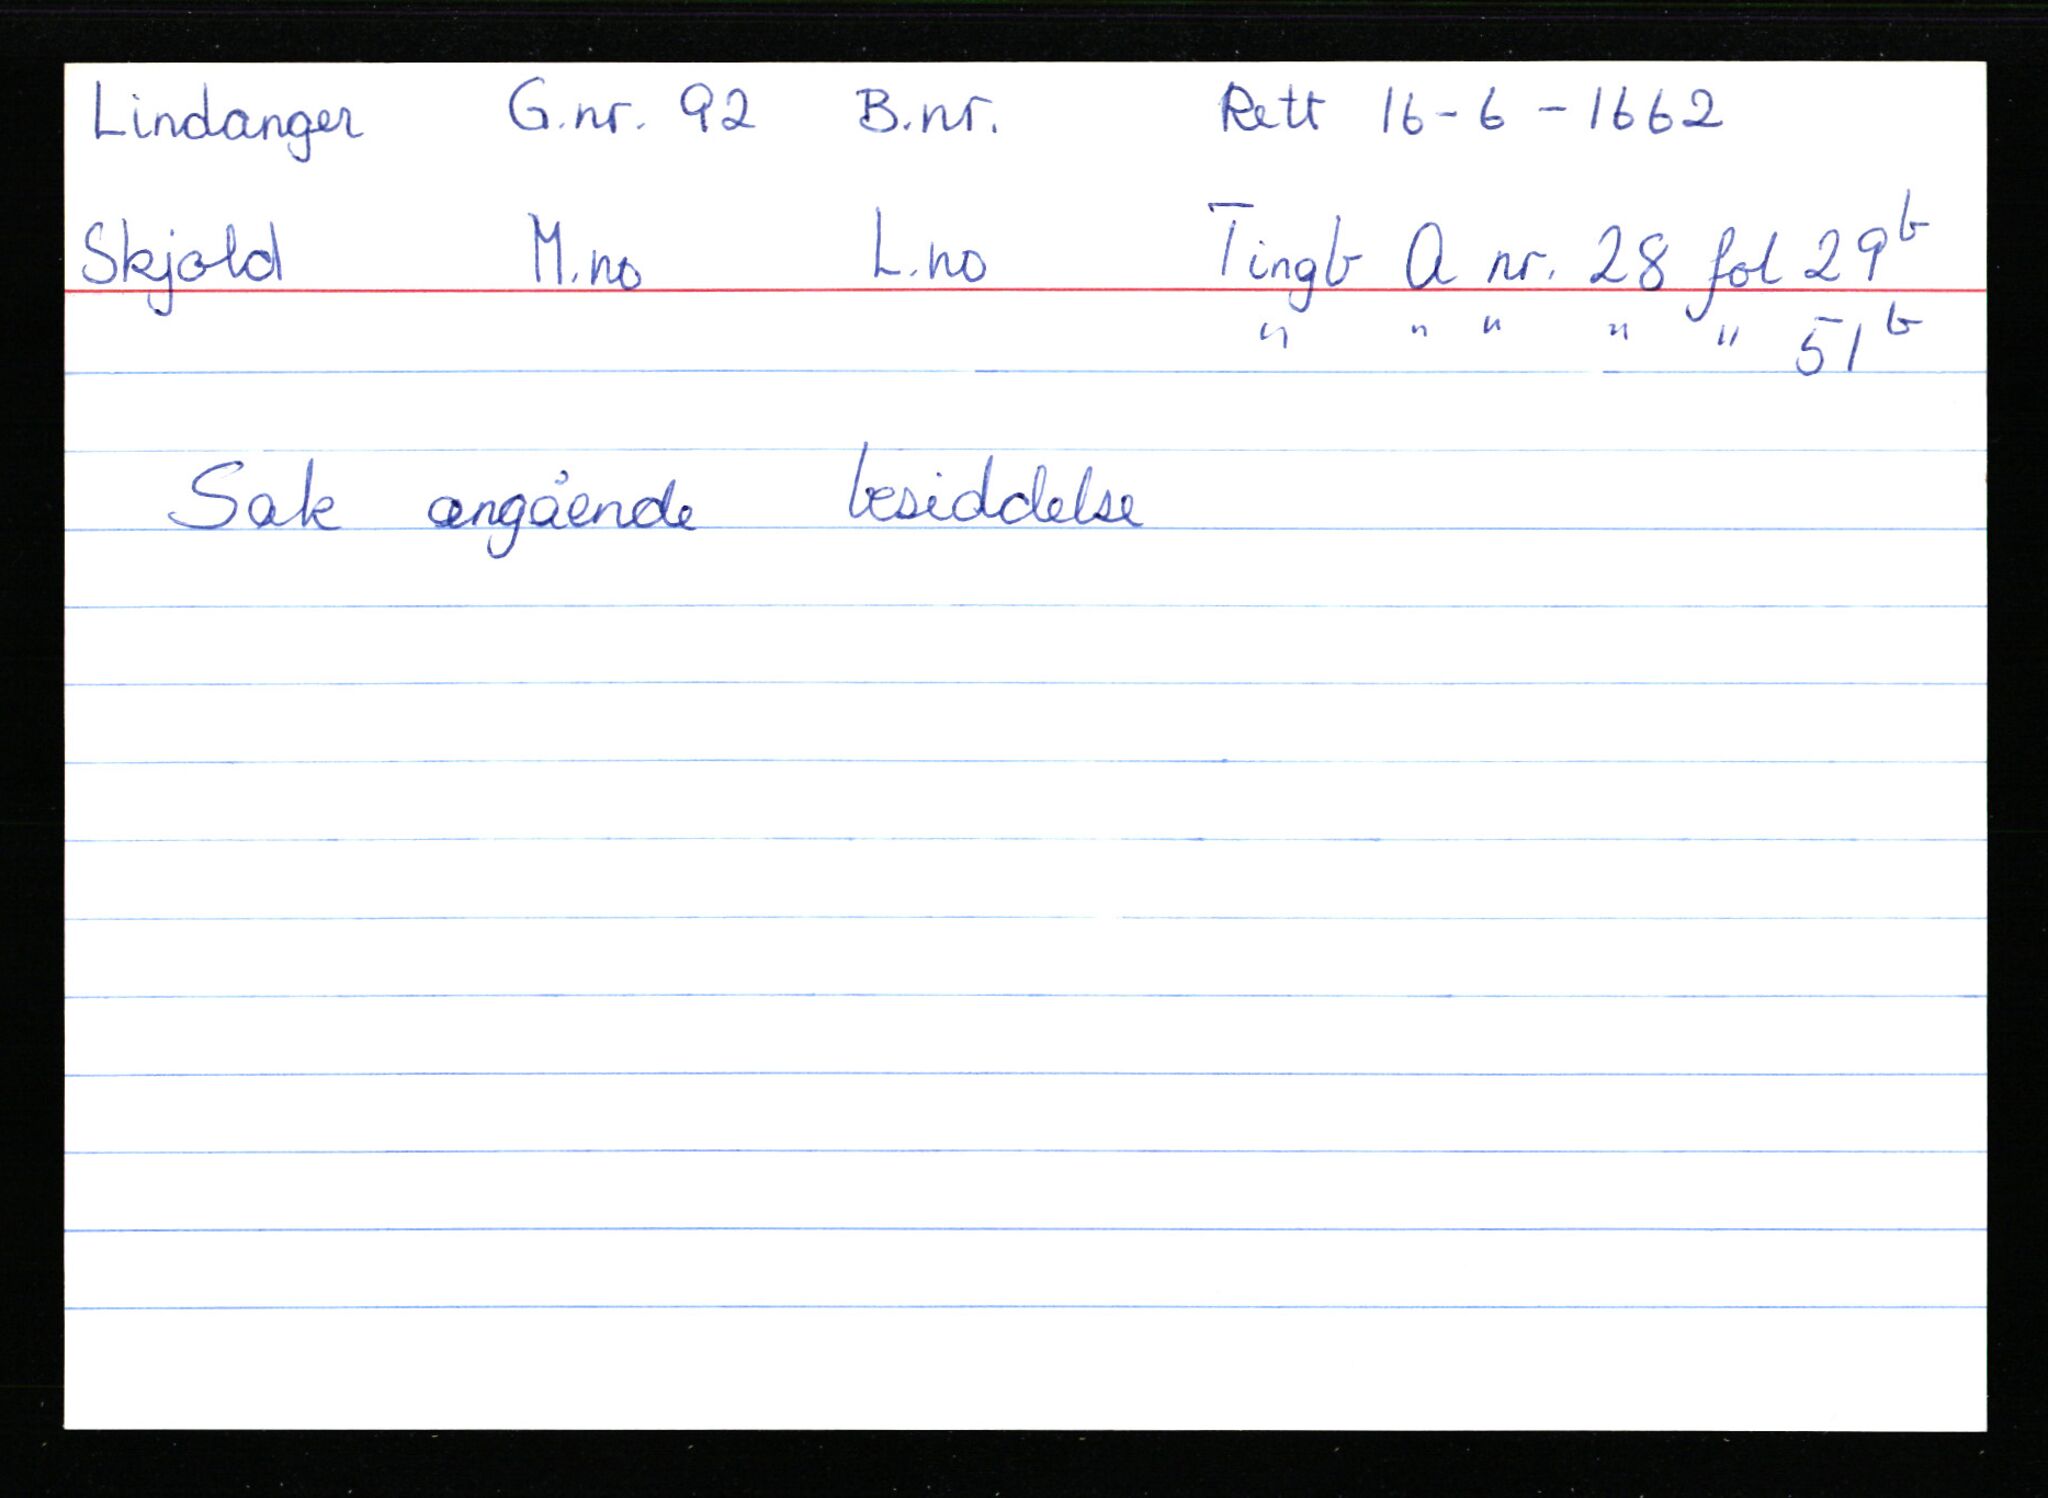 Lindanger G.nr. 92 B.nr. Rett 16-6-1662
Skjold M.no L.no Tingb A nr. 28 fol 29b
" " " " " 51b
Sak angående besiddelse